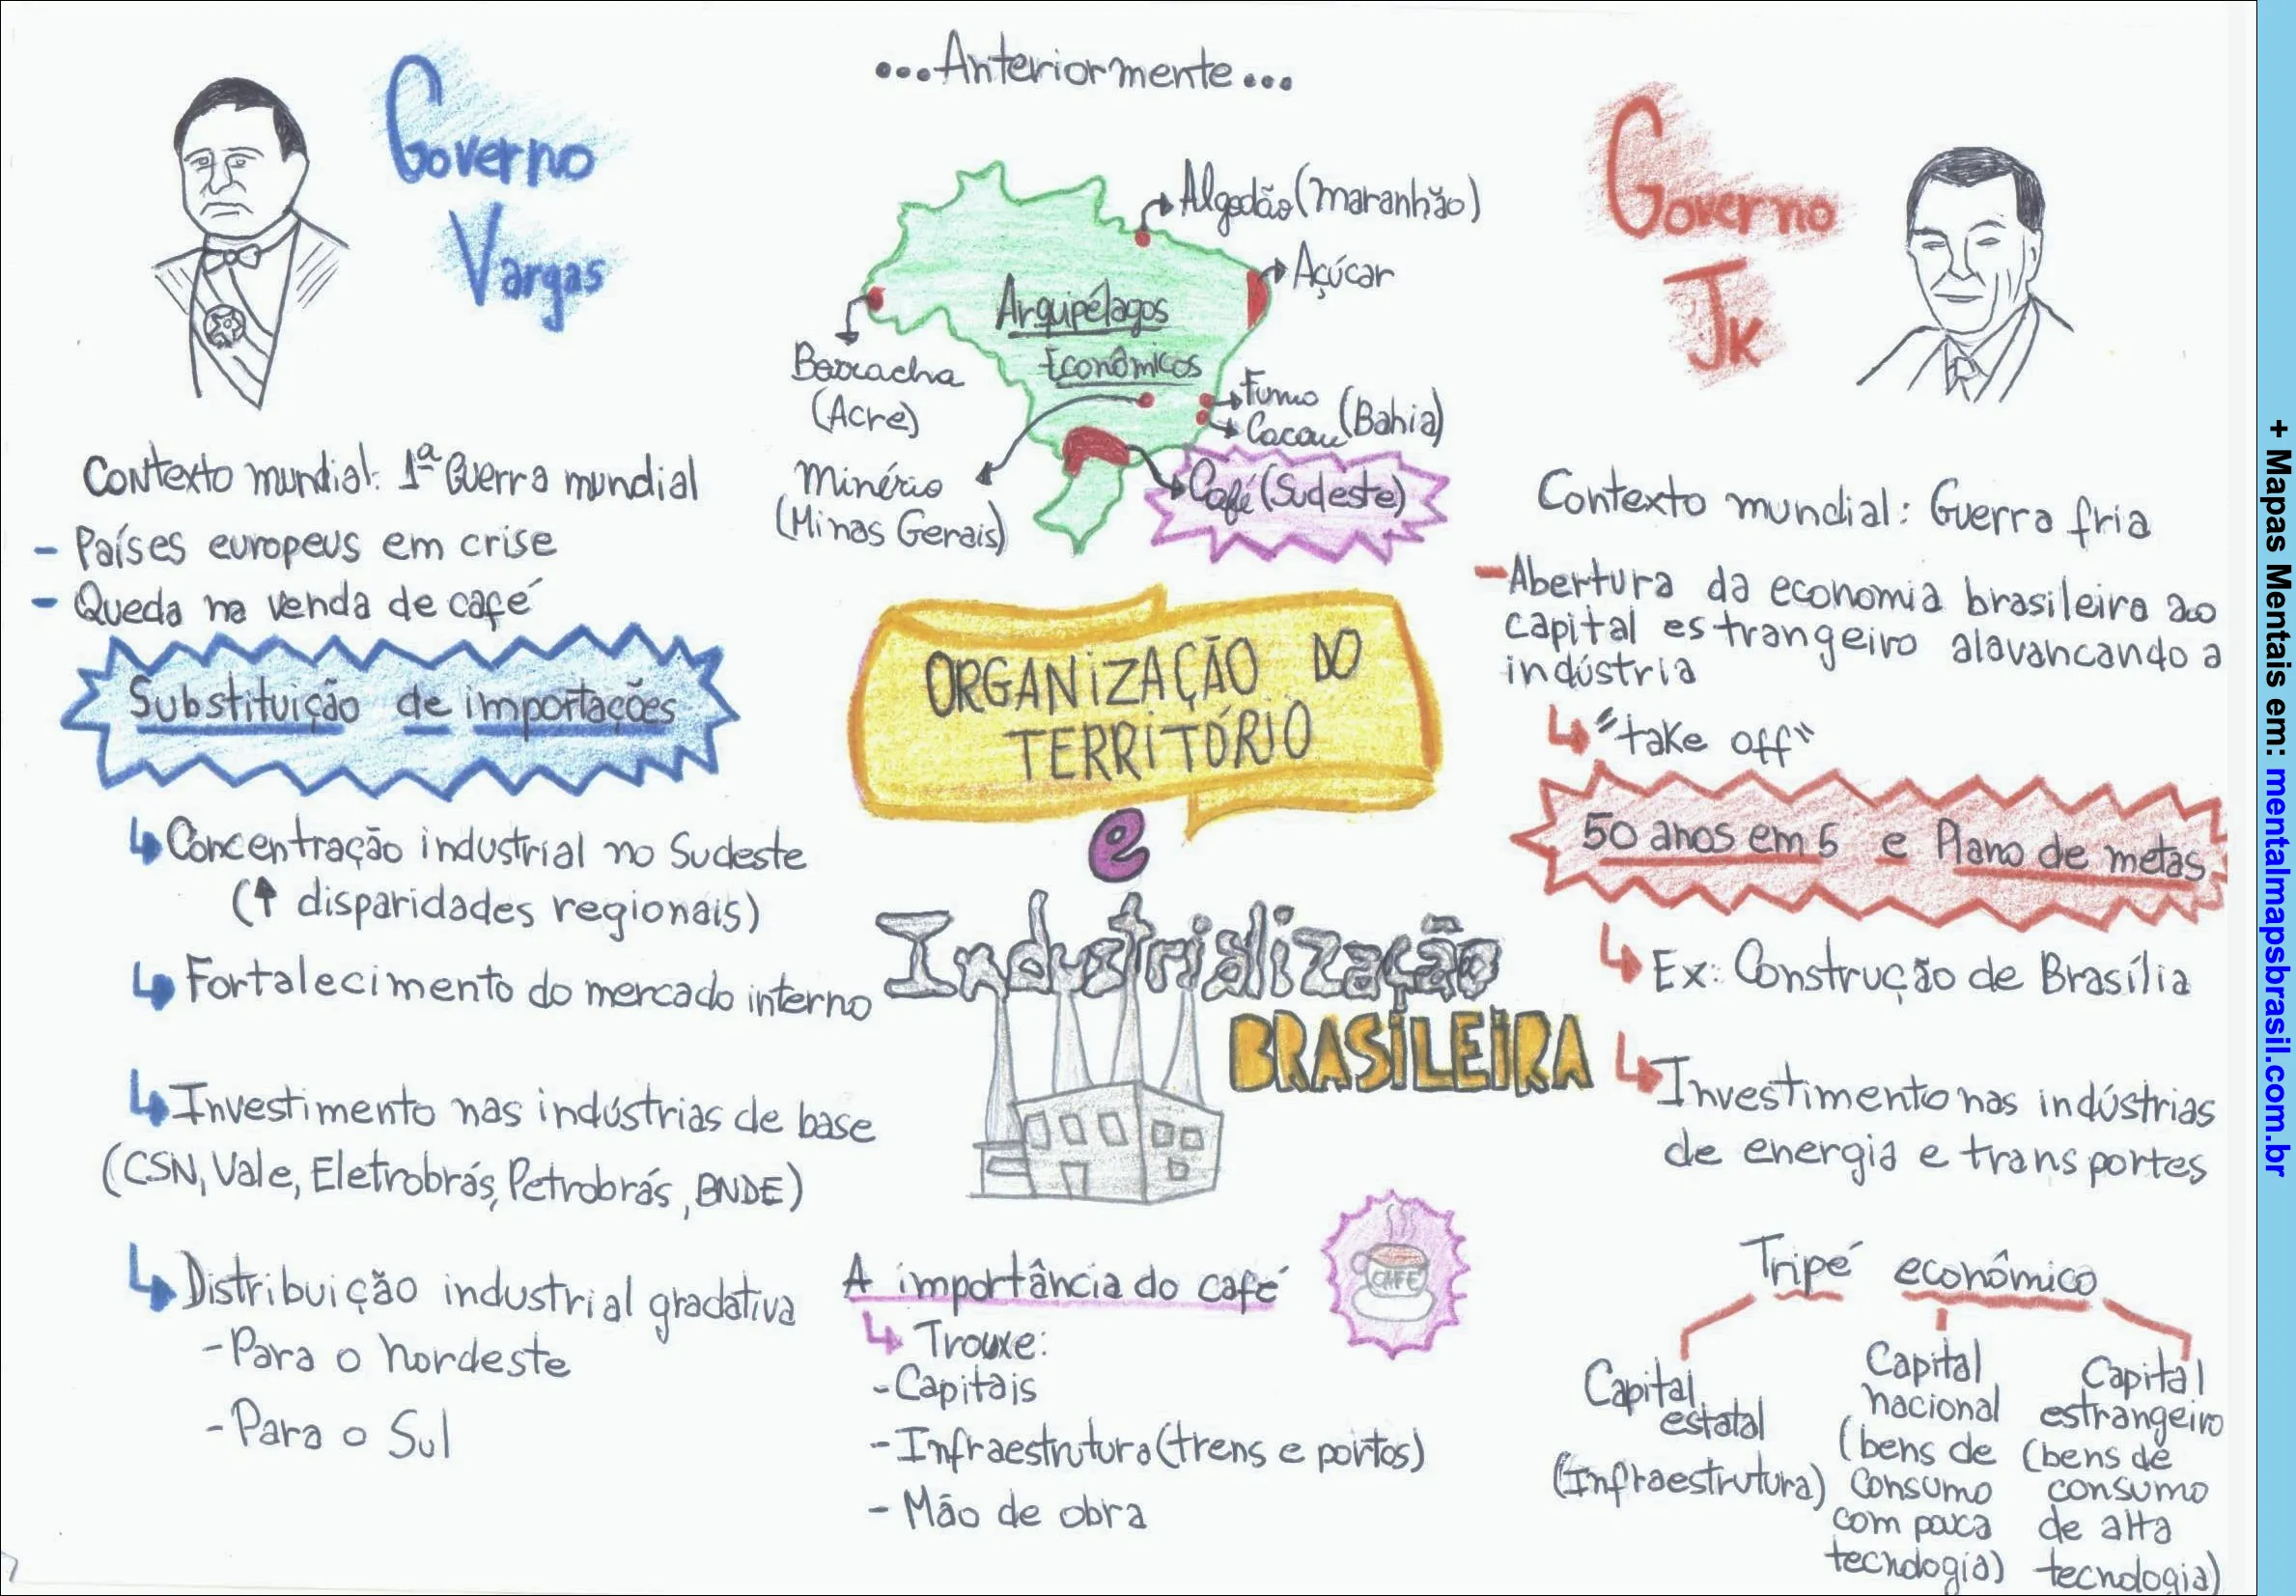 ...Anteriormente...
Governo
Vargas
Contexto mundial: 1ª Guerra mundial
- Países europeus em crise
- Queda na venda de café
Substituição de importações
Concentração industrial no Sudeste
(↑ disparidades regionais)
Fortalecimento do mercado interno
Investimento nas indústrias de base
(CSN, Vale, Eletrobrás, Petrobrás, BNDE)
Distribuição industrial gradativa
- Para o Nordeste
- Para o Sul
Algodão (Maranhão)
Açúcar
Arquipélagos
Econômicos
Borracha
(Acre)
Fumo
Cacau (Bahia)
Minério
(Minas Gerais)
Café (Sudeste)
ORGANIZAÇÃO DO
TERRITÓRIO
e
Industrialização
BRASILEIRA
A importância do café
CAFÉ
Trouxe:
- Capitais
- Infraestrutura (trens e portos)
- Mão de obra
Governo
JK
Contexto mundial: Guerra fria
- Abertura da economia brasileira ao
capital estrangeiro alavancando a
indústria
"take off"
50 anos em 5 e Plano de metas
Ex: Construção de Brasília
Investimento nas indústrias
de energia e transportes
Tripé econômico
Capital
estatal
(Infraestrutura)
Capital
nacional
(bens de
consumo
com pouca
tecnologia)
Capital
estrangeiro
(bens de
consumo
de alta
tecnologia)
+ Mapas Mentais em: mentalmapsbrasil.com.br